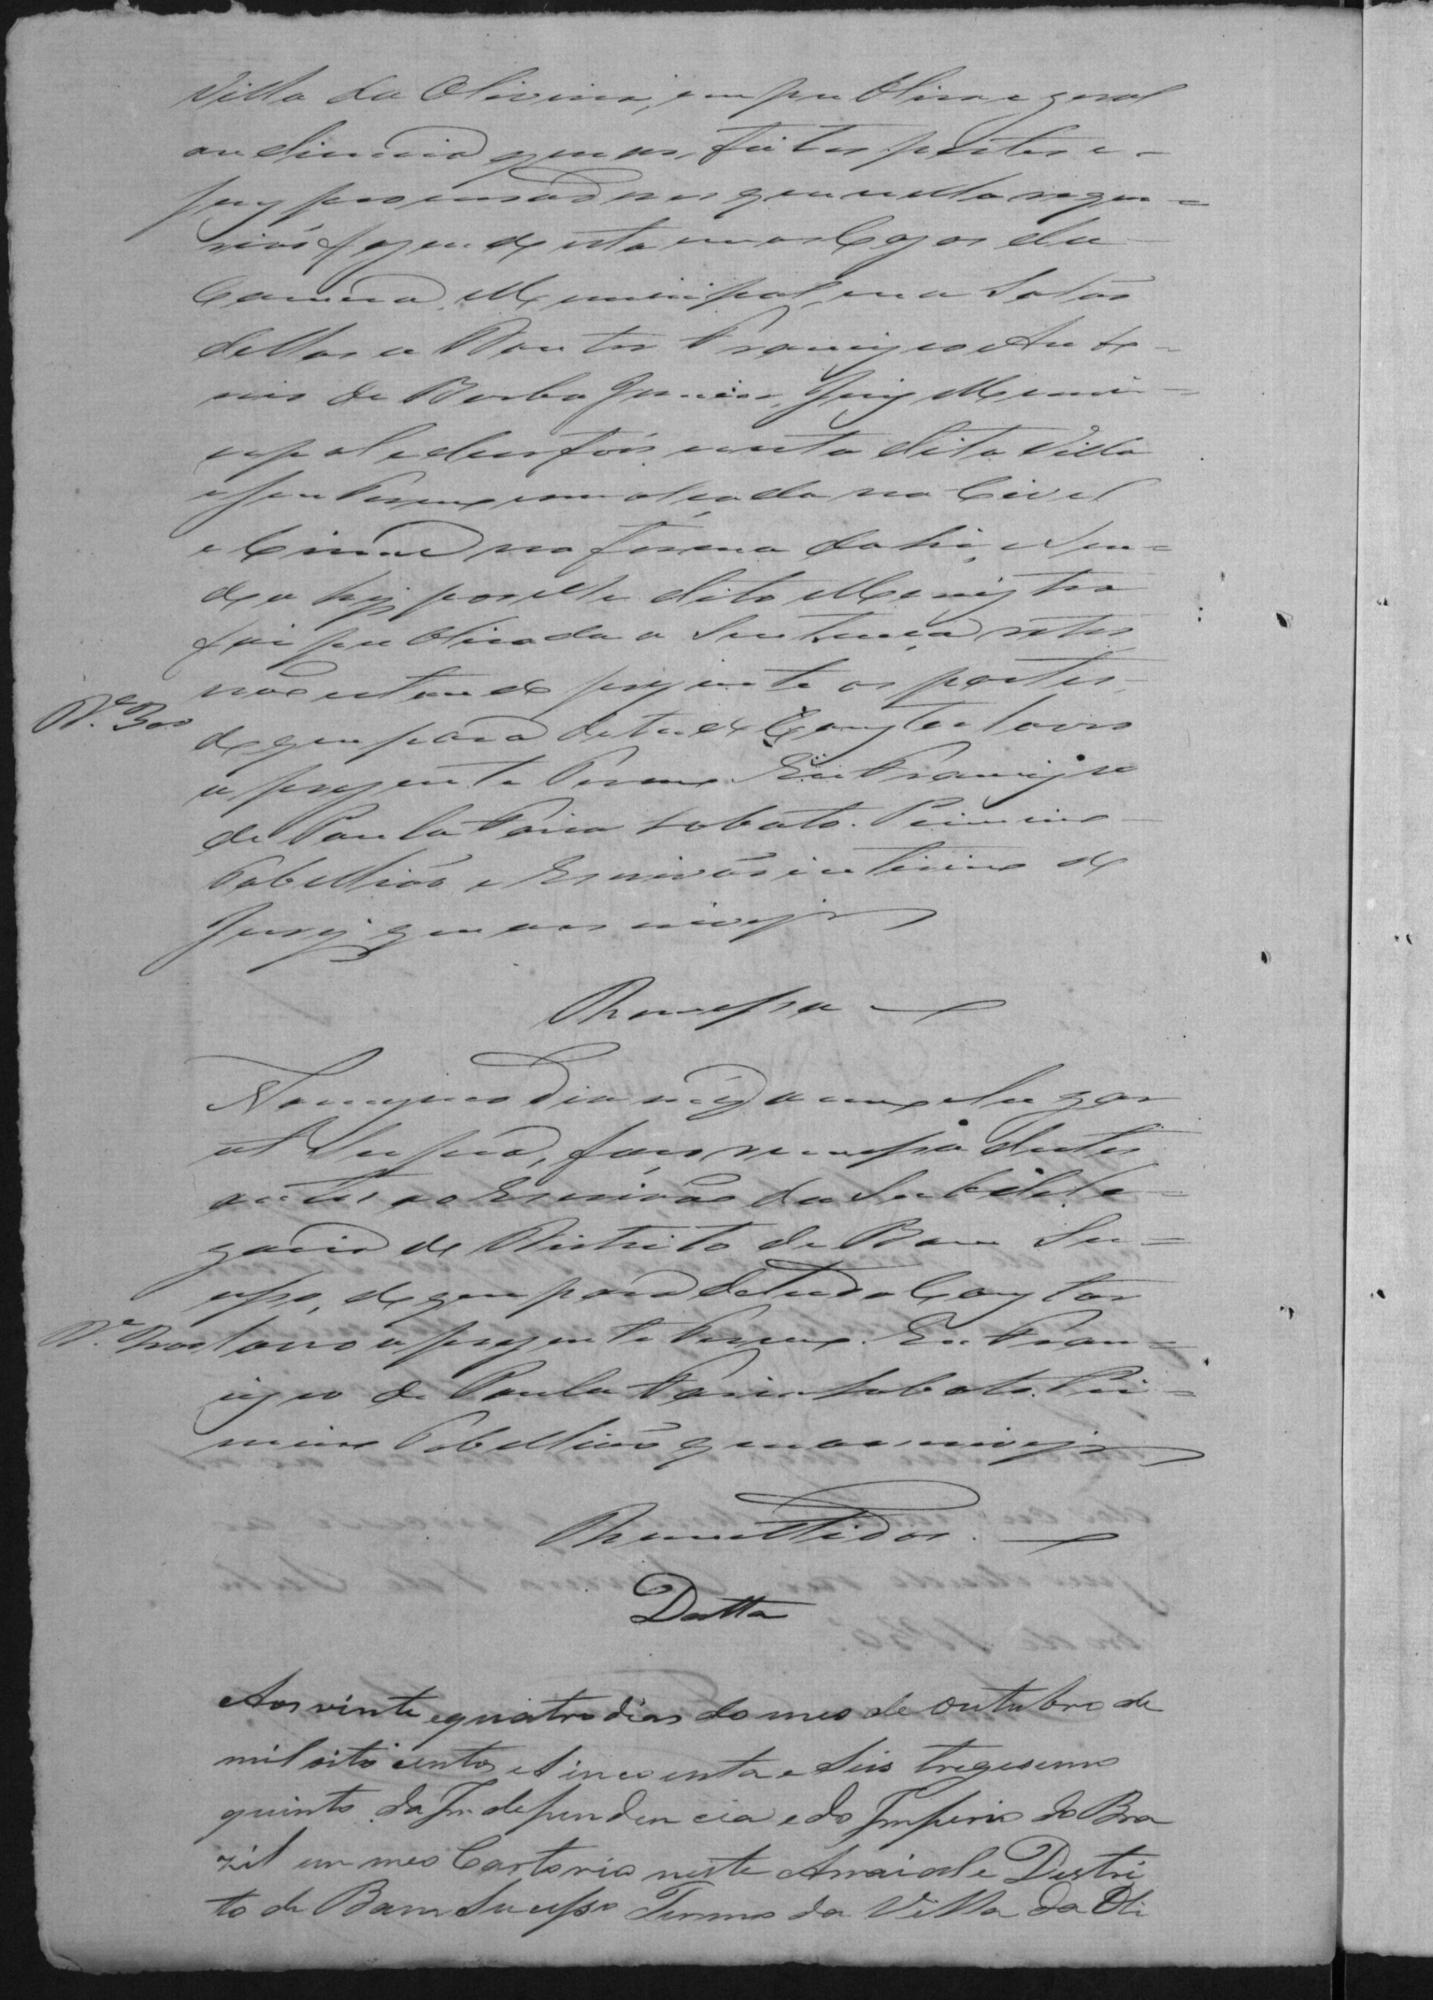 Villa da Oliveira, em publica e geral
audiencia que aos feitos partes e
seus procuradores que nella reque-
rião fazendo esta em as Cazas da
Camara Municipal, em a Sala
della o Doutor Francisco Anto-
nio de Borba Junior, Juiz Muni-
cipal e dos fóis nesta dita Villa
e seu Termo com alçada no Civel
e Crime na forma da Lei, e Sen-
do a hi por elle dito Menistro
foi publicada a Sentença retro
não estando prezente as partes,
R. 300
do que para de tudo Constar lavro
o prezente Termo. Eu Francisco
de Paula Faria Lobato. Primeiro
Tabellião e Escrivão interino do
Jury que o escrevy
Remessa
No mesmo dia mez anno e lugar
ut Supra, faço remessa destes
autos ao Escrivão da Subdele-
gacia do Districto de Bom Su-
cesso, do que para de tudo Constar
R. 300 lavro o prezente Termo. Eu Fran-
cisco de Paula Faria Lobato. Pri-
meiro Tabellião que o escrevy
Remettidos.
Datta
Aos vinte e quatro dias do mes de outubro de
mil oito centos e Sincoenta e Seis trigesimo
quinto da Independencia e do Imperio do Bra
zil em meo Cartorio neste Arraial e Destri
to de Bom Sucesso Termo da Villa da Oli